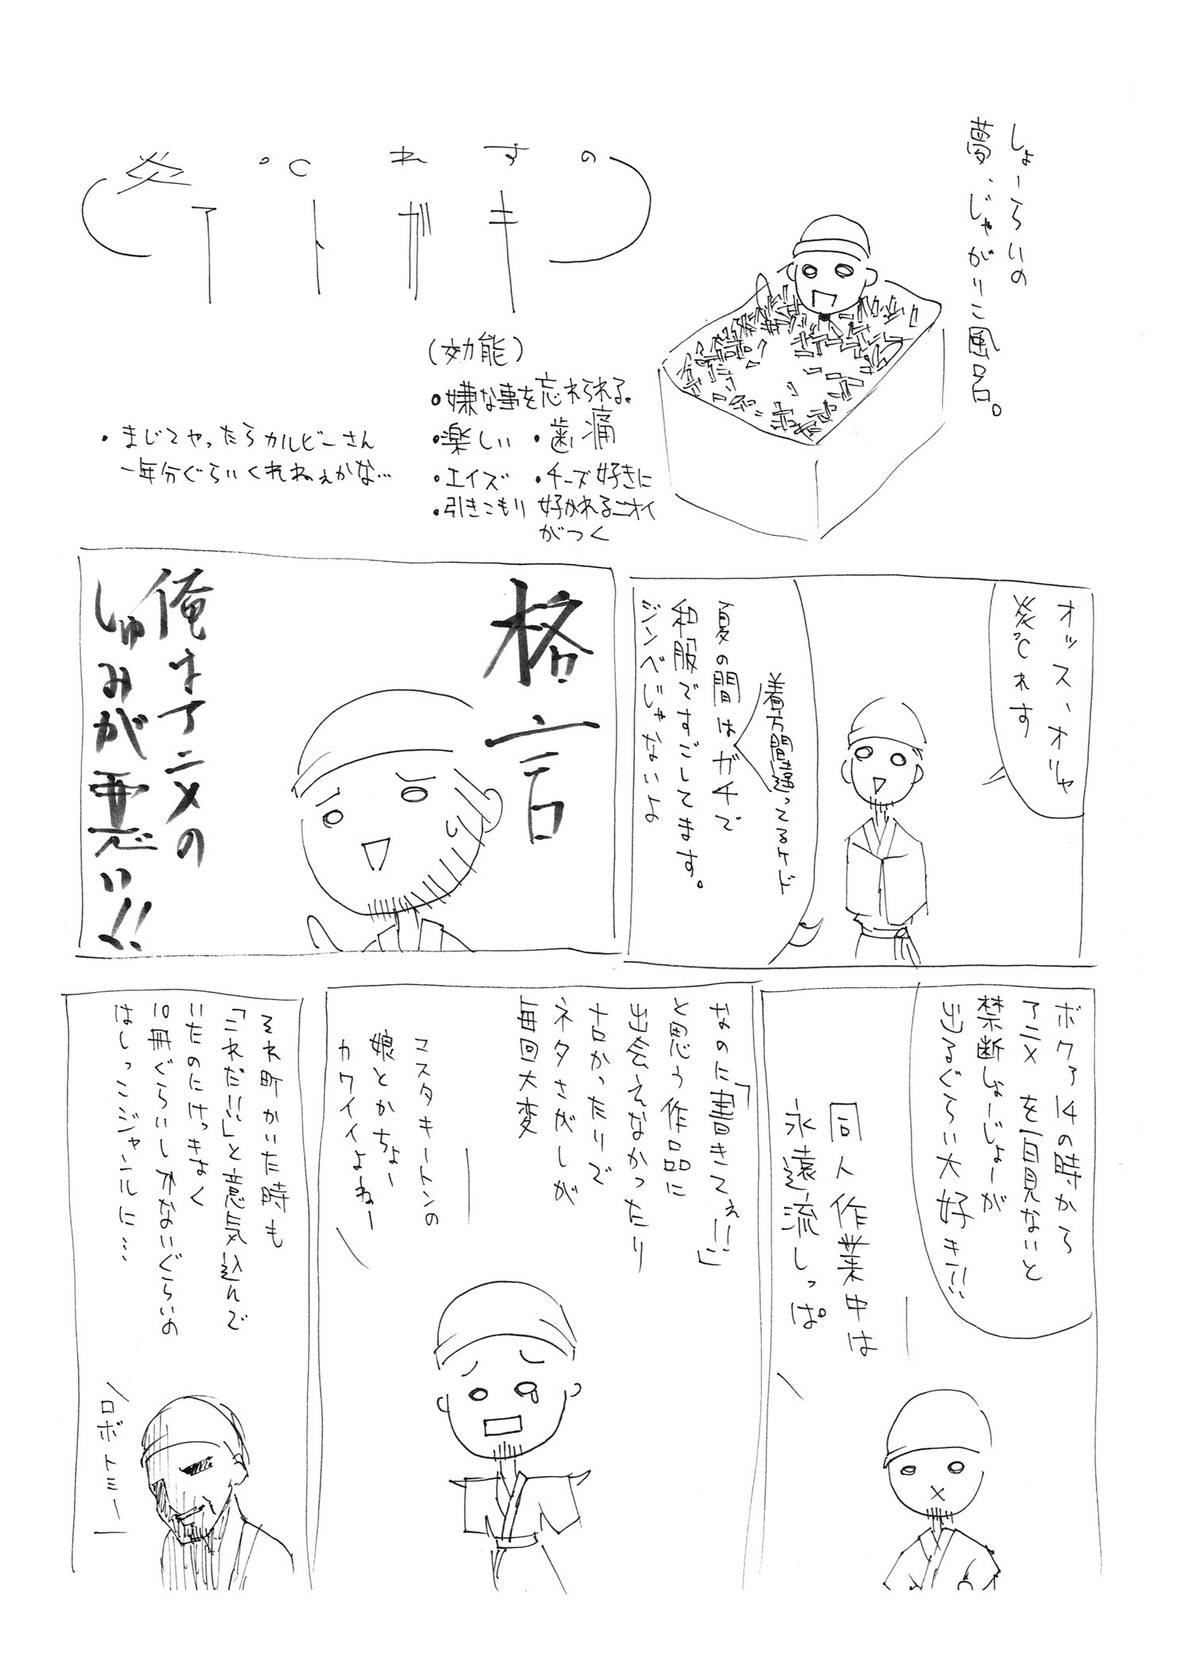 しょーらいの
夢、じゃがりこ風呂。
炎℃れすの
アトガキ
(効能)
・嫌な事を忘れられる。
・楽しい ・歯痛
・エイズ ・チーズ好きに
・引きこもり 好かれるニオイ
がつく
・まじでやったらカルビーさん
一年分ぐらいくれねぇかな…
オッス、オリャ
炎℃れす
着方間違ってるケド
夏の間はガチで
和服ですごしてます。
ジンベじゃないよ
格言
俺はアニメの
しゅみが悪い!!
ボクァ14の時から
アニメを一日見ないと
禁断しょーじょーが
出るぐらい大好き!!
同人作業中は
永遠流しっぱ。
なのに「書きてぇ!!」
と思う作品に
出会えなかったり
ナカったりで
ネタさがしが
毎回大変
マスタキートンの
娘とかちょー
カワイイよねー
それ町かいた時も
「これだ!!」と意気込んで
いたのにけっきょく
10冊ぐらいしかないぐらいの
はしっこジャンルに…
ロボトミー